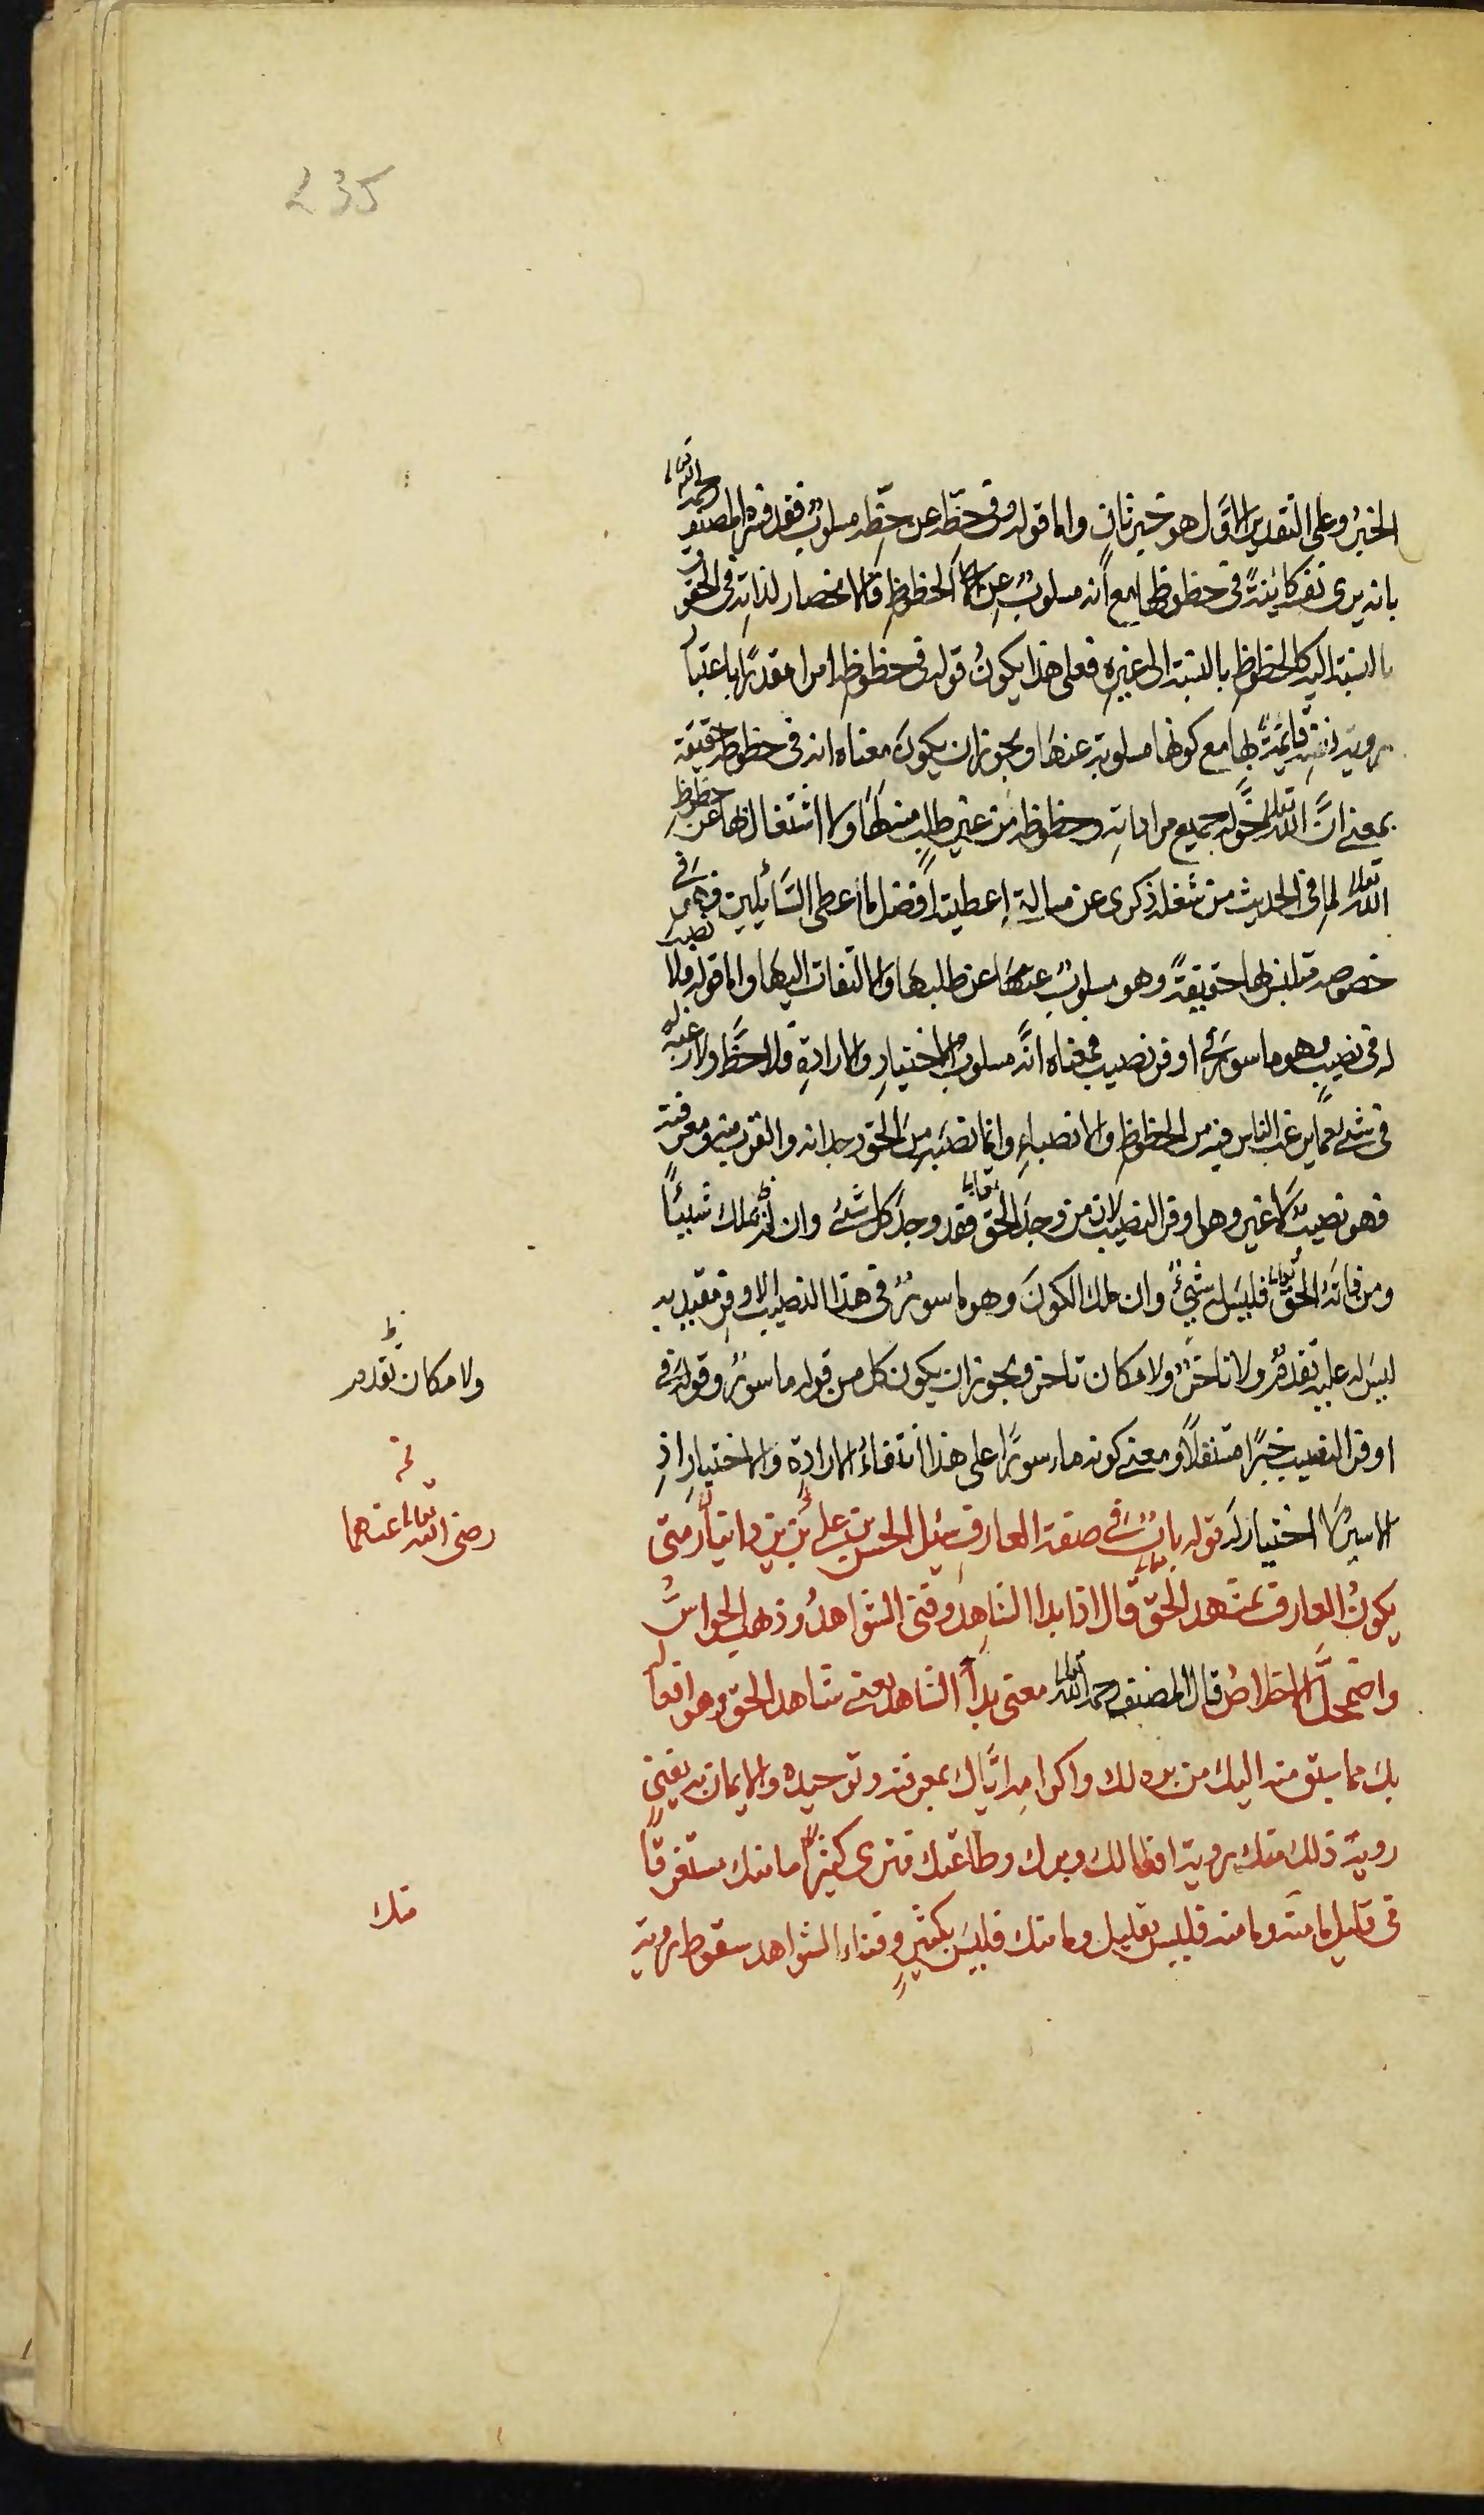 235
الخبر وعلى التقدير الاول هو خبر ثان واما قوله وفى حظه عن حظه مسلوب فقد فسره المصنف رحمه الله تعالى
بانه يرى نفسه كائنة فى حظوظها مع انه مسلوب عن الحظوظ والانحصار لذاته فى الحقوق
بالنسبة اليه كالحظوظ بالنسبة الى غيره فعلى هذا يكون قوله فى حظوظه امرا مقدرا باعتبار
رؤية نفسه قائمة بها مع كونها مسلوبة عنها ويجوز ان يكون معناه انه فى حظوظه حقيقة
بمعنى ان الله تعالى خوله جميع مراداته وحظوظه من غير طلب منه لها ولا اشتغال لها عن حظوظ
الله تعالى لما فى الحديث من شغله ذكرى عن مسالة اعطيته افضل ما اعطى السائلين فهو فى
خصوصه متلبس بها حقيقة وهو مسلوب عنها عن طلبها والالتفات اليها واما قوله ولا نصيب
له فى نصيب وهو ماسور فى اوفر نصيب فمعناه انه مسلوب الاختيار والارادة فلا حظ ولا رغبة له
فى شئ مما يرغب الناس فيه من الحظوظ والانصباء وانما نصيبه من الحق وجدانه والقرب منه ومعرفته
فهو نصيب لا غير وهو اوفر النصيب لان من وجد الحق تعالى فقد وجد كل شئ وان لم يملك شيئا
ومن فاته الحق تعالى فليس له شئ وان ملك الكون وهو ماسور فى هذا النصيب الاوفر مقيد به
ليس له عليه تقدم ولا تاخر ولا مكان تاخر ويجوز ان يكون كل من قوله ماسور وقوله فى
ولا مكان تقدم
اوفر النصيب خبرا مستقلا ومعنى كونه ماسورا على هذا انتفاء الارادة والاختيار اذ
الاسير لا اختيار له قوله بان فى صفة العارف سئل الحسن بن على بن يزدانيار متى
رضى الله تعالى عنهما
يكون العارف بمشهد الحق تعالى قال اذا بدا الشاهد وفنى الشواهد وذهب الحواس
واضمحل الاخلاص قال المصنف رحمه الله تعالى معنى بدا الشاهد يعنى شاهد الحق وهو افعاله
بك مما سبق منه اليك من بره لك واكرامه اياك بمعرفته وتوحيده والايمان به يفنى
رؤية ذلك منك رؤية افعالك وبرك وطاعتك فترى كثيرا ما منك مستغرقا
فى قليل ما منه وما منه فليس بقليل وما منك فليس بكثير وفناء الشواهد سقوط رؤية
منك